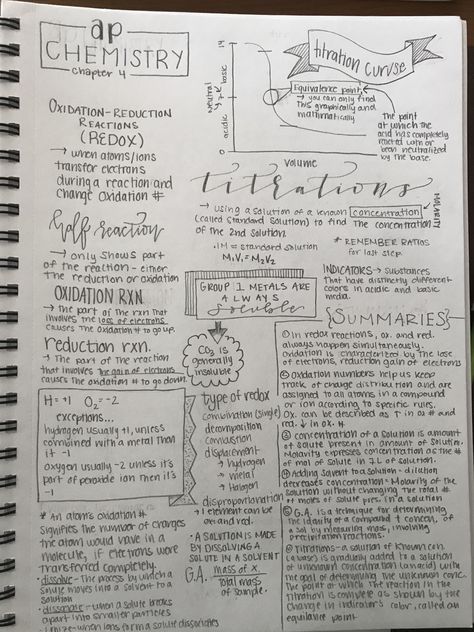 ap
CHEMISTRY
chapter 4
OXIDATION-REDUCTION
REACTIONS
(REDOX)
→ when atoms/ions
transfer electrons
during a reaction and
change oxidation #
Half reaction
→ only shows part
of the reaction - either
the reduction or oxidation
OXIDATION RXN
→ the part of the rxn that
involves the loss of electrons
causes the oxidation # to go up.
reduction rxn.
→ The part of the reaction
that involves the gain of electrons
causes the oxidation # to go down.
H = +1 O₂ = -2
exceptions...
hydrogen usually +1, unless
combined with a metal then
it -1
oxygen usually -2 unless it's
part of peroxide ion then it's
-1
* An atom's oxidation #
signifies the number of charges
the atom would have in a
molecule, if electrons were
transferred completely.
• dissolve - the process by which a
solute moves into a solvent to a
solution
• dissociate - when a solute breaks
apart into smaller particles
14
basic
neutral
7
acidic
0
volume
titration curve
Equivalence point
→ you can only find
this graphically and
mathmatically
The point
at which the
acid has completely
reacted with or
been neutralized
by the base.
titrations
MOLARITY
→ using a solution of a known concentration
(called standard solution) to find the concentration
of the 2nd solution.
• 1M = standard solution
M₁V₁ = M₂V₂
* REMEMBER RATIOS
for last step.
GROUP 1 METALS ARE
ALWAYS
soluble
CO₃ is
generally
insoluble
type of redox
combination (single)
decomposition
combustion
displacement
→ hydrogen
→ metal
→ Halogen
disproportionation
↳ 1 element can be
ox. and red.
• A SOLUTION IS MADE
BY DISSOLVING A
SOLUTE IN A SOLVENT
G.A. = mass of x
Total mass
of sample.
INDICATORS → substances
that have distinctly different
colors in acidic and basic
media.
{SUMMARIES}
① In redox reactions, ox. and red.
always happen simultaneously.
Oxidation is characterized by the lose
of electrons, reduction gain of electrons
② oxidation numbers help us keep
track of charge distribution and are
assigned to all atoms in a compound
or ion according to specific rules.
Ox. can be described as ↑ in o# and
red. ↓ in ox. #.
③ concentration of a solution is amount
of solute present in amount of solution.
Molarity expresses concentration as the #
of mol of solute in 1 L of solution.
④ Adding solvent to a solution = dilution
decreases concentration = Molarity of the
solution without changing the total #
of moles of solute pres. in a solution
⑤ G.A. is a technique for determining
the identity of a compound & concen. of
a sol by measuring mass, involving
precipitation reactions.
⑥ Titrations - a solution of known con.
(a base) is gradually added to a solution
of unknown concentration (an acid) with the
goal of determining the unknown conc.
The point at which the reaction in the
titration is complete as shown by the
change in indicator's color, called an
equivalence point.